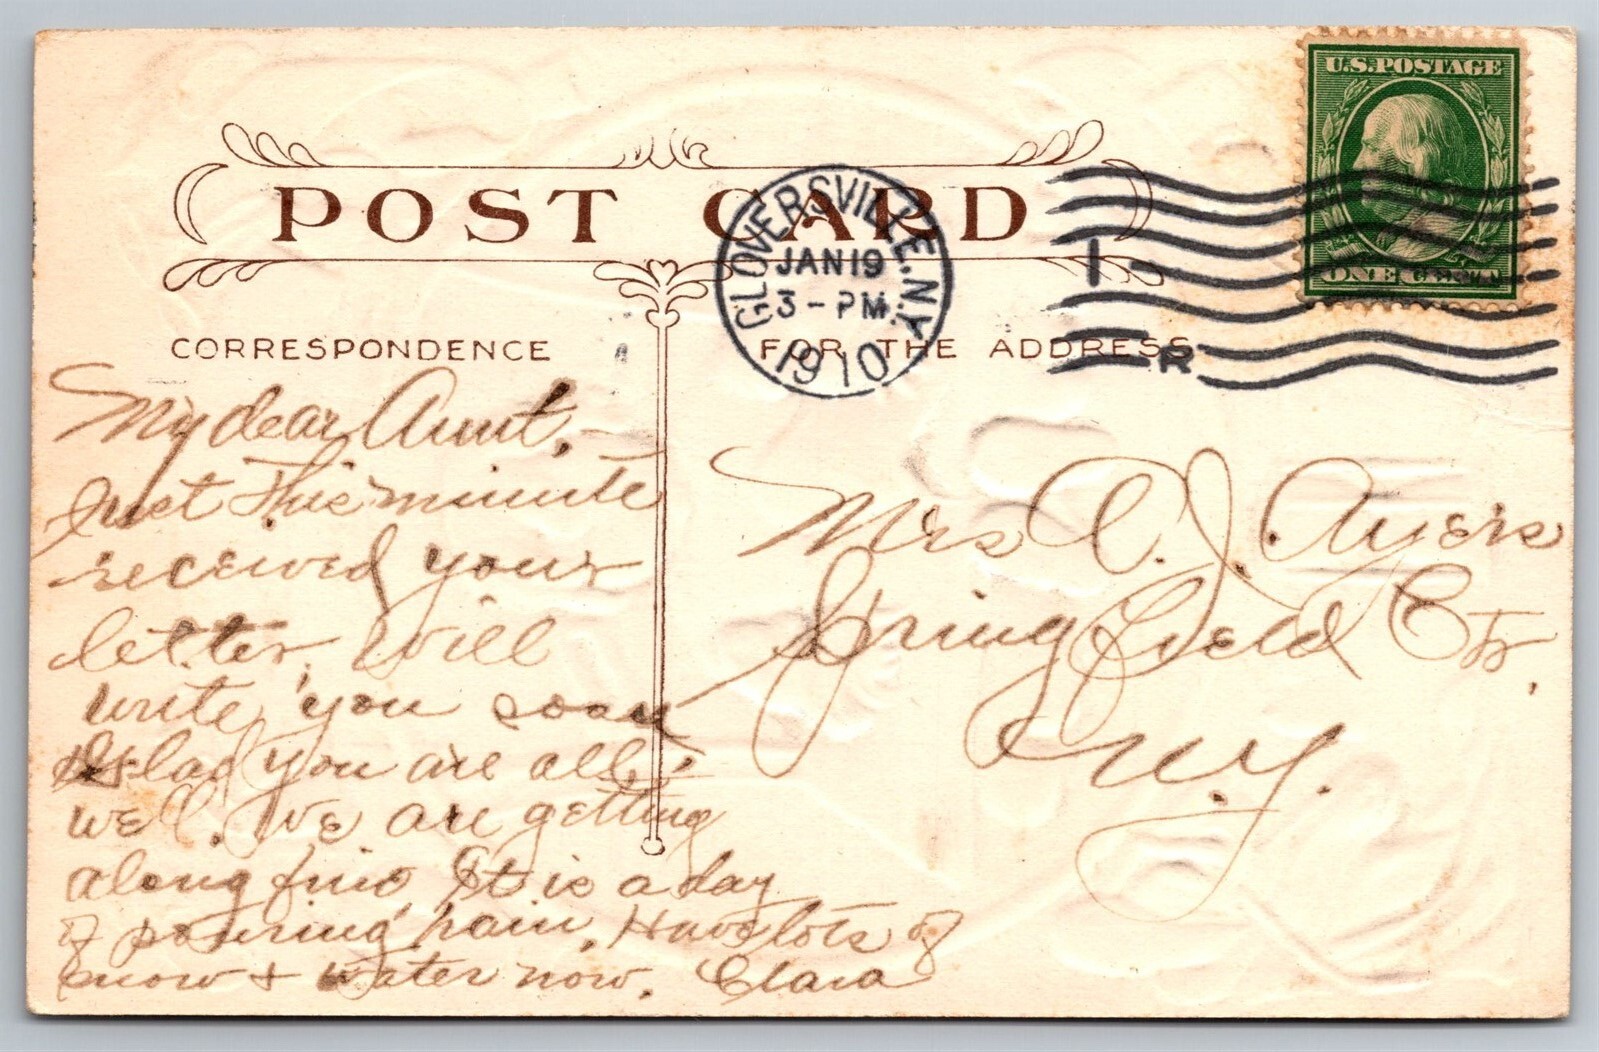 U.S.POSTAGE
ONE CENT
POST CARD
GLOVERSVILLE. N.Y.
JAN 19
3 - PM
1910
I
R
CORRESPONDENCE
FOR THE ADDRESS
My dear Aunt, -
Just this minute
received your
letter. Will
write you soon
glad you are all
well. We are getting
along fine It is a day
of pouring rain, Have lots of
snow & water now. Clara
Mrs A. J. Ayers
Springfield Ctr,
N.Y.